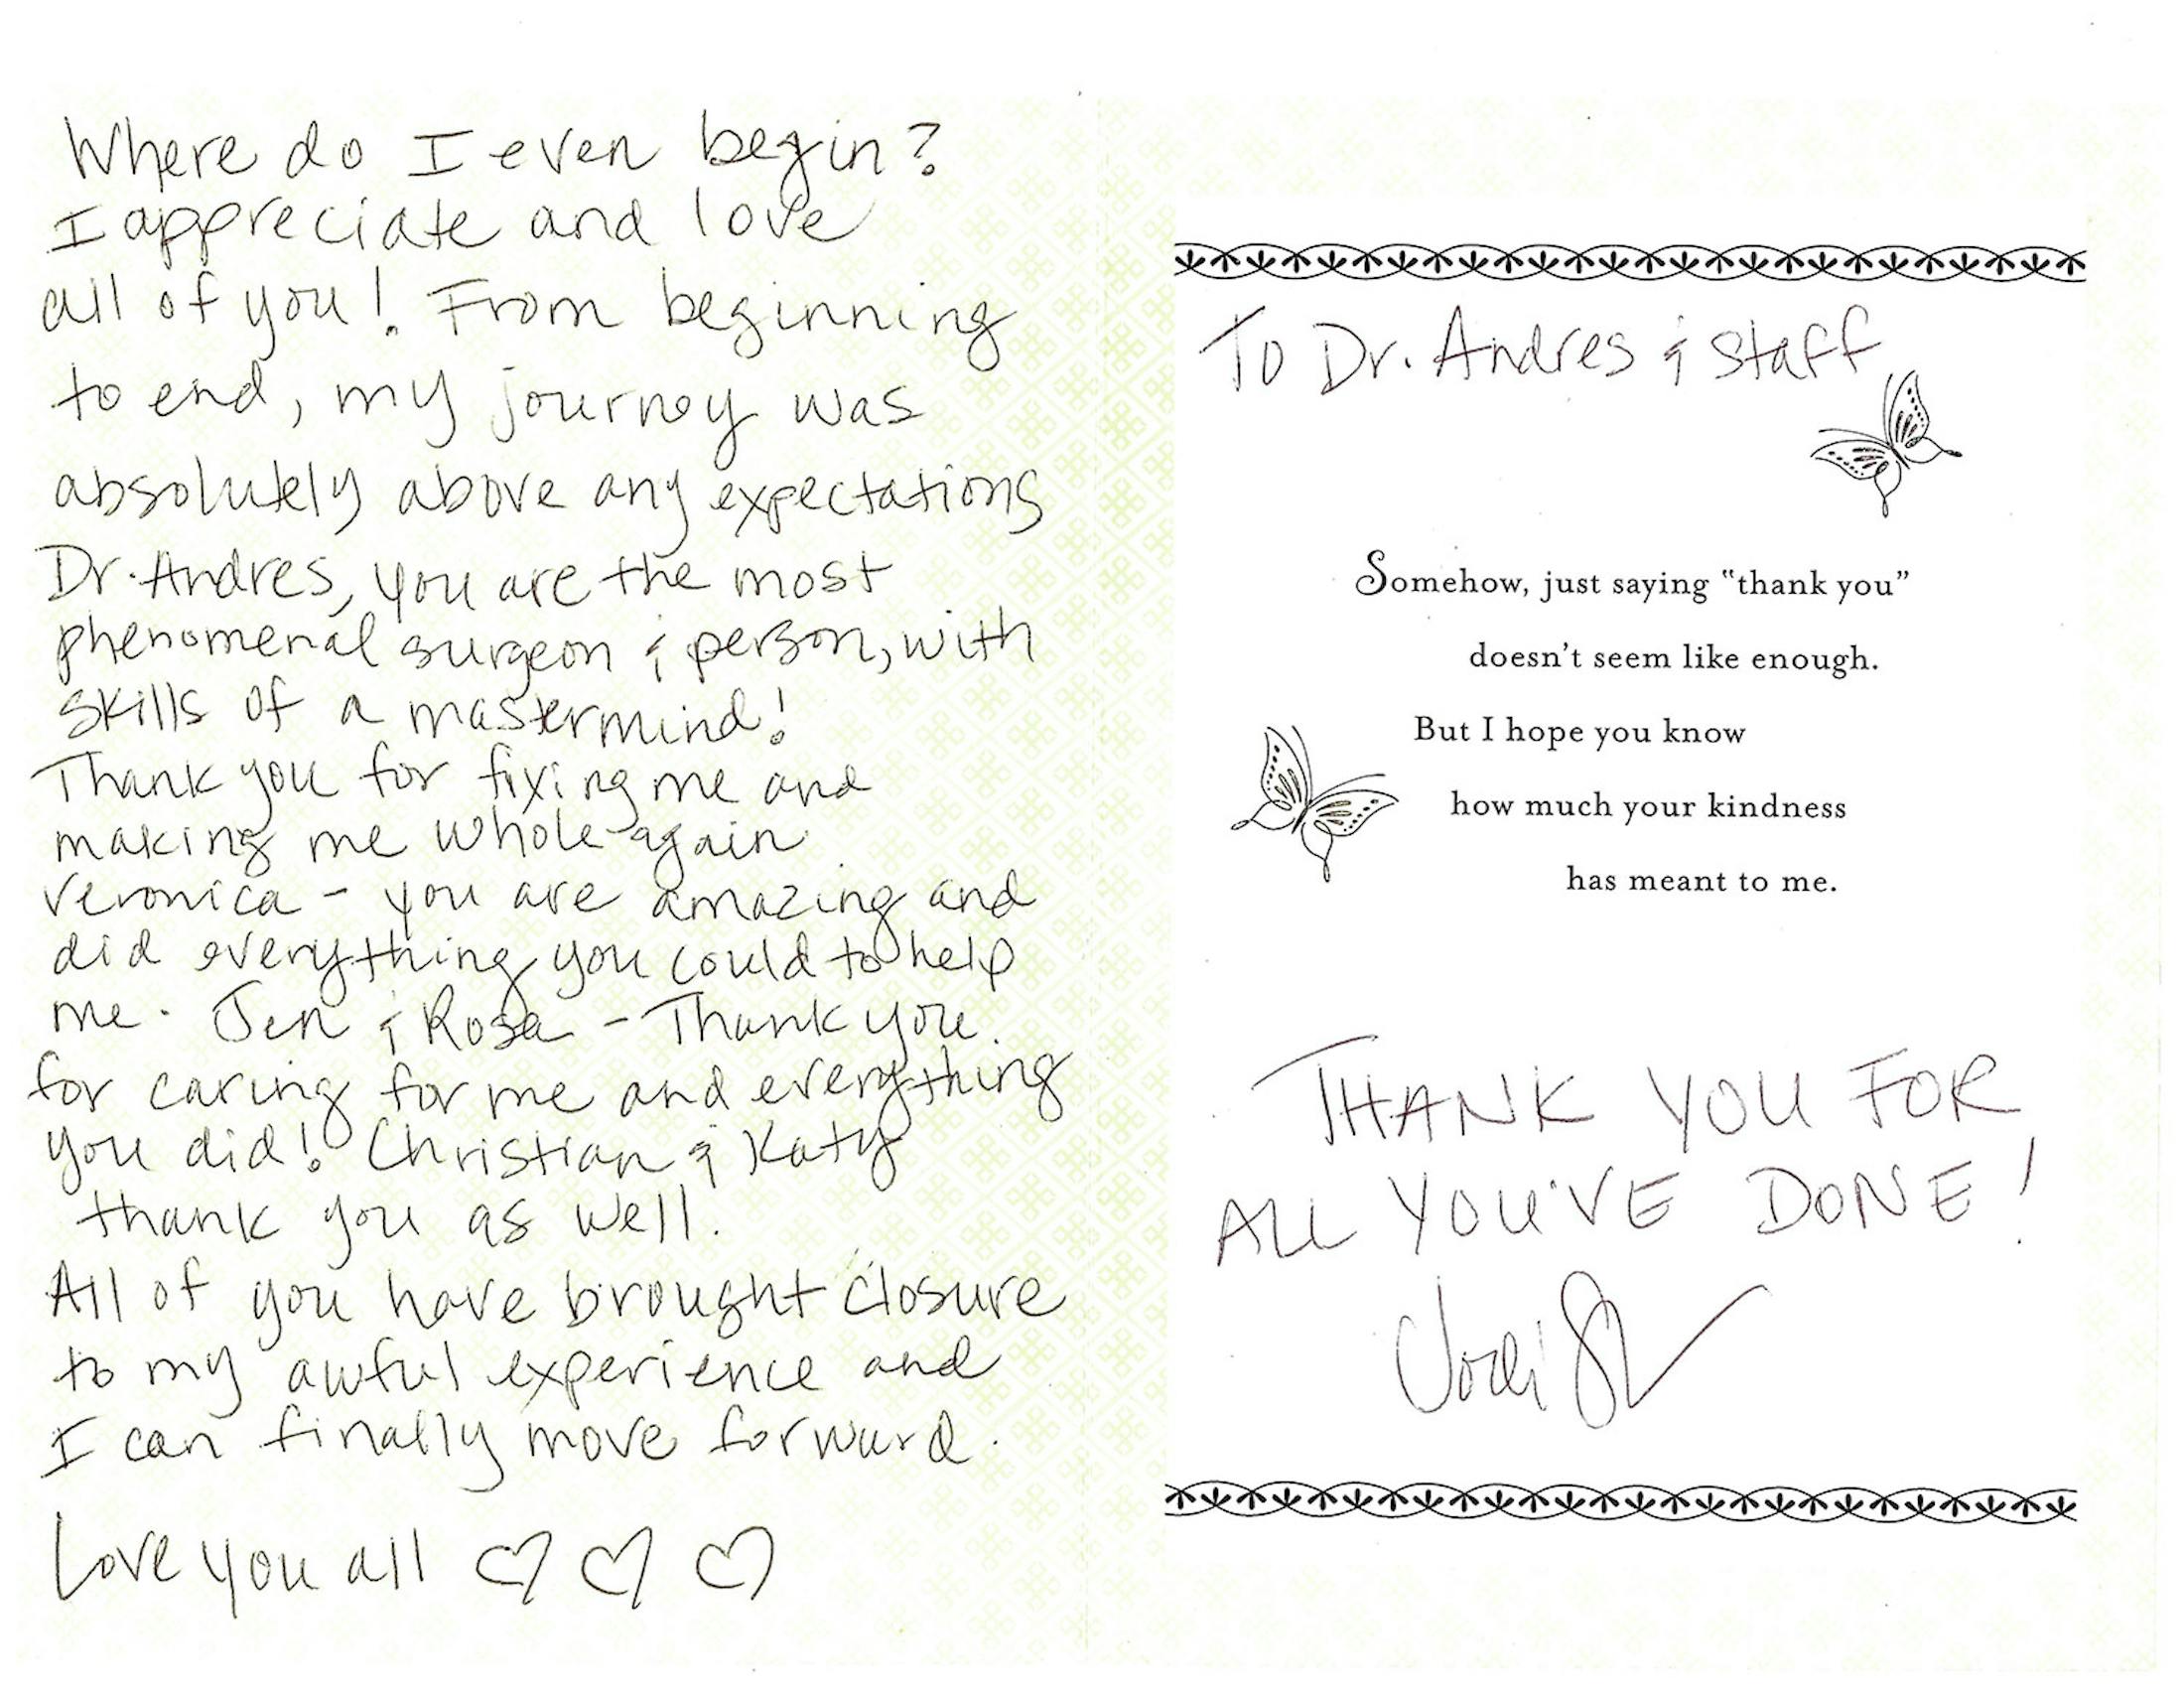 Where do I even begin?
I appreciate and love
all of you! From beginning
to end, my journey was
absolutely above any expectations
Dr. Andres, you are the most
phenomenal surgeon & person, with
skills of a mastermind!
Thank you for fixing me and
making me whole again.
Veronica - you are amazing and
did everything you could to help
me. Jen & Rosa - Thank you
for caring for me and everything
you did! Christian & Katy
thank you as well.
All of you have brought closure
to my awful experience and
I can finally move forward.
Love you all ♡ ♡ ♡
To Dr. Andres & Staff
Somehow, just saying "thank you"
doesn't seem like enough.
But I hope you know
how much your kindness
has meant to me.
THANK YOU FOR
ALL YOU'VE DONE!
Jodi